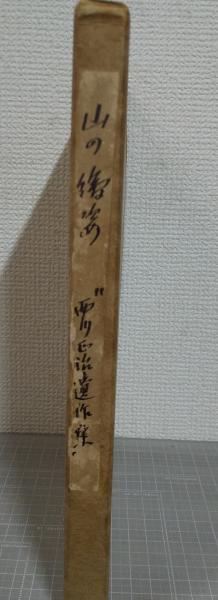 山の繪姿
正治遺作集